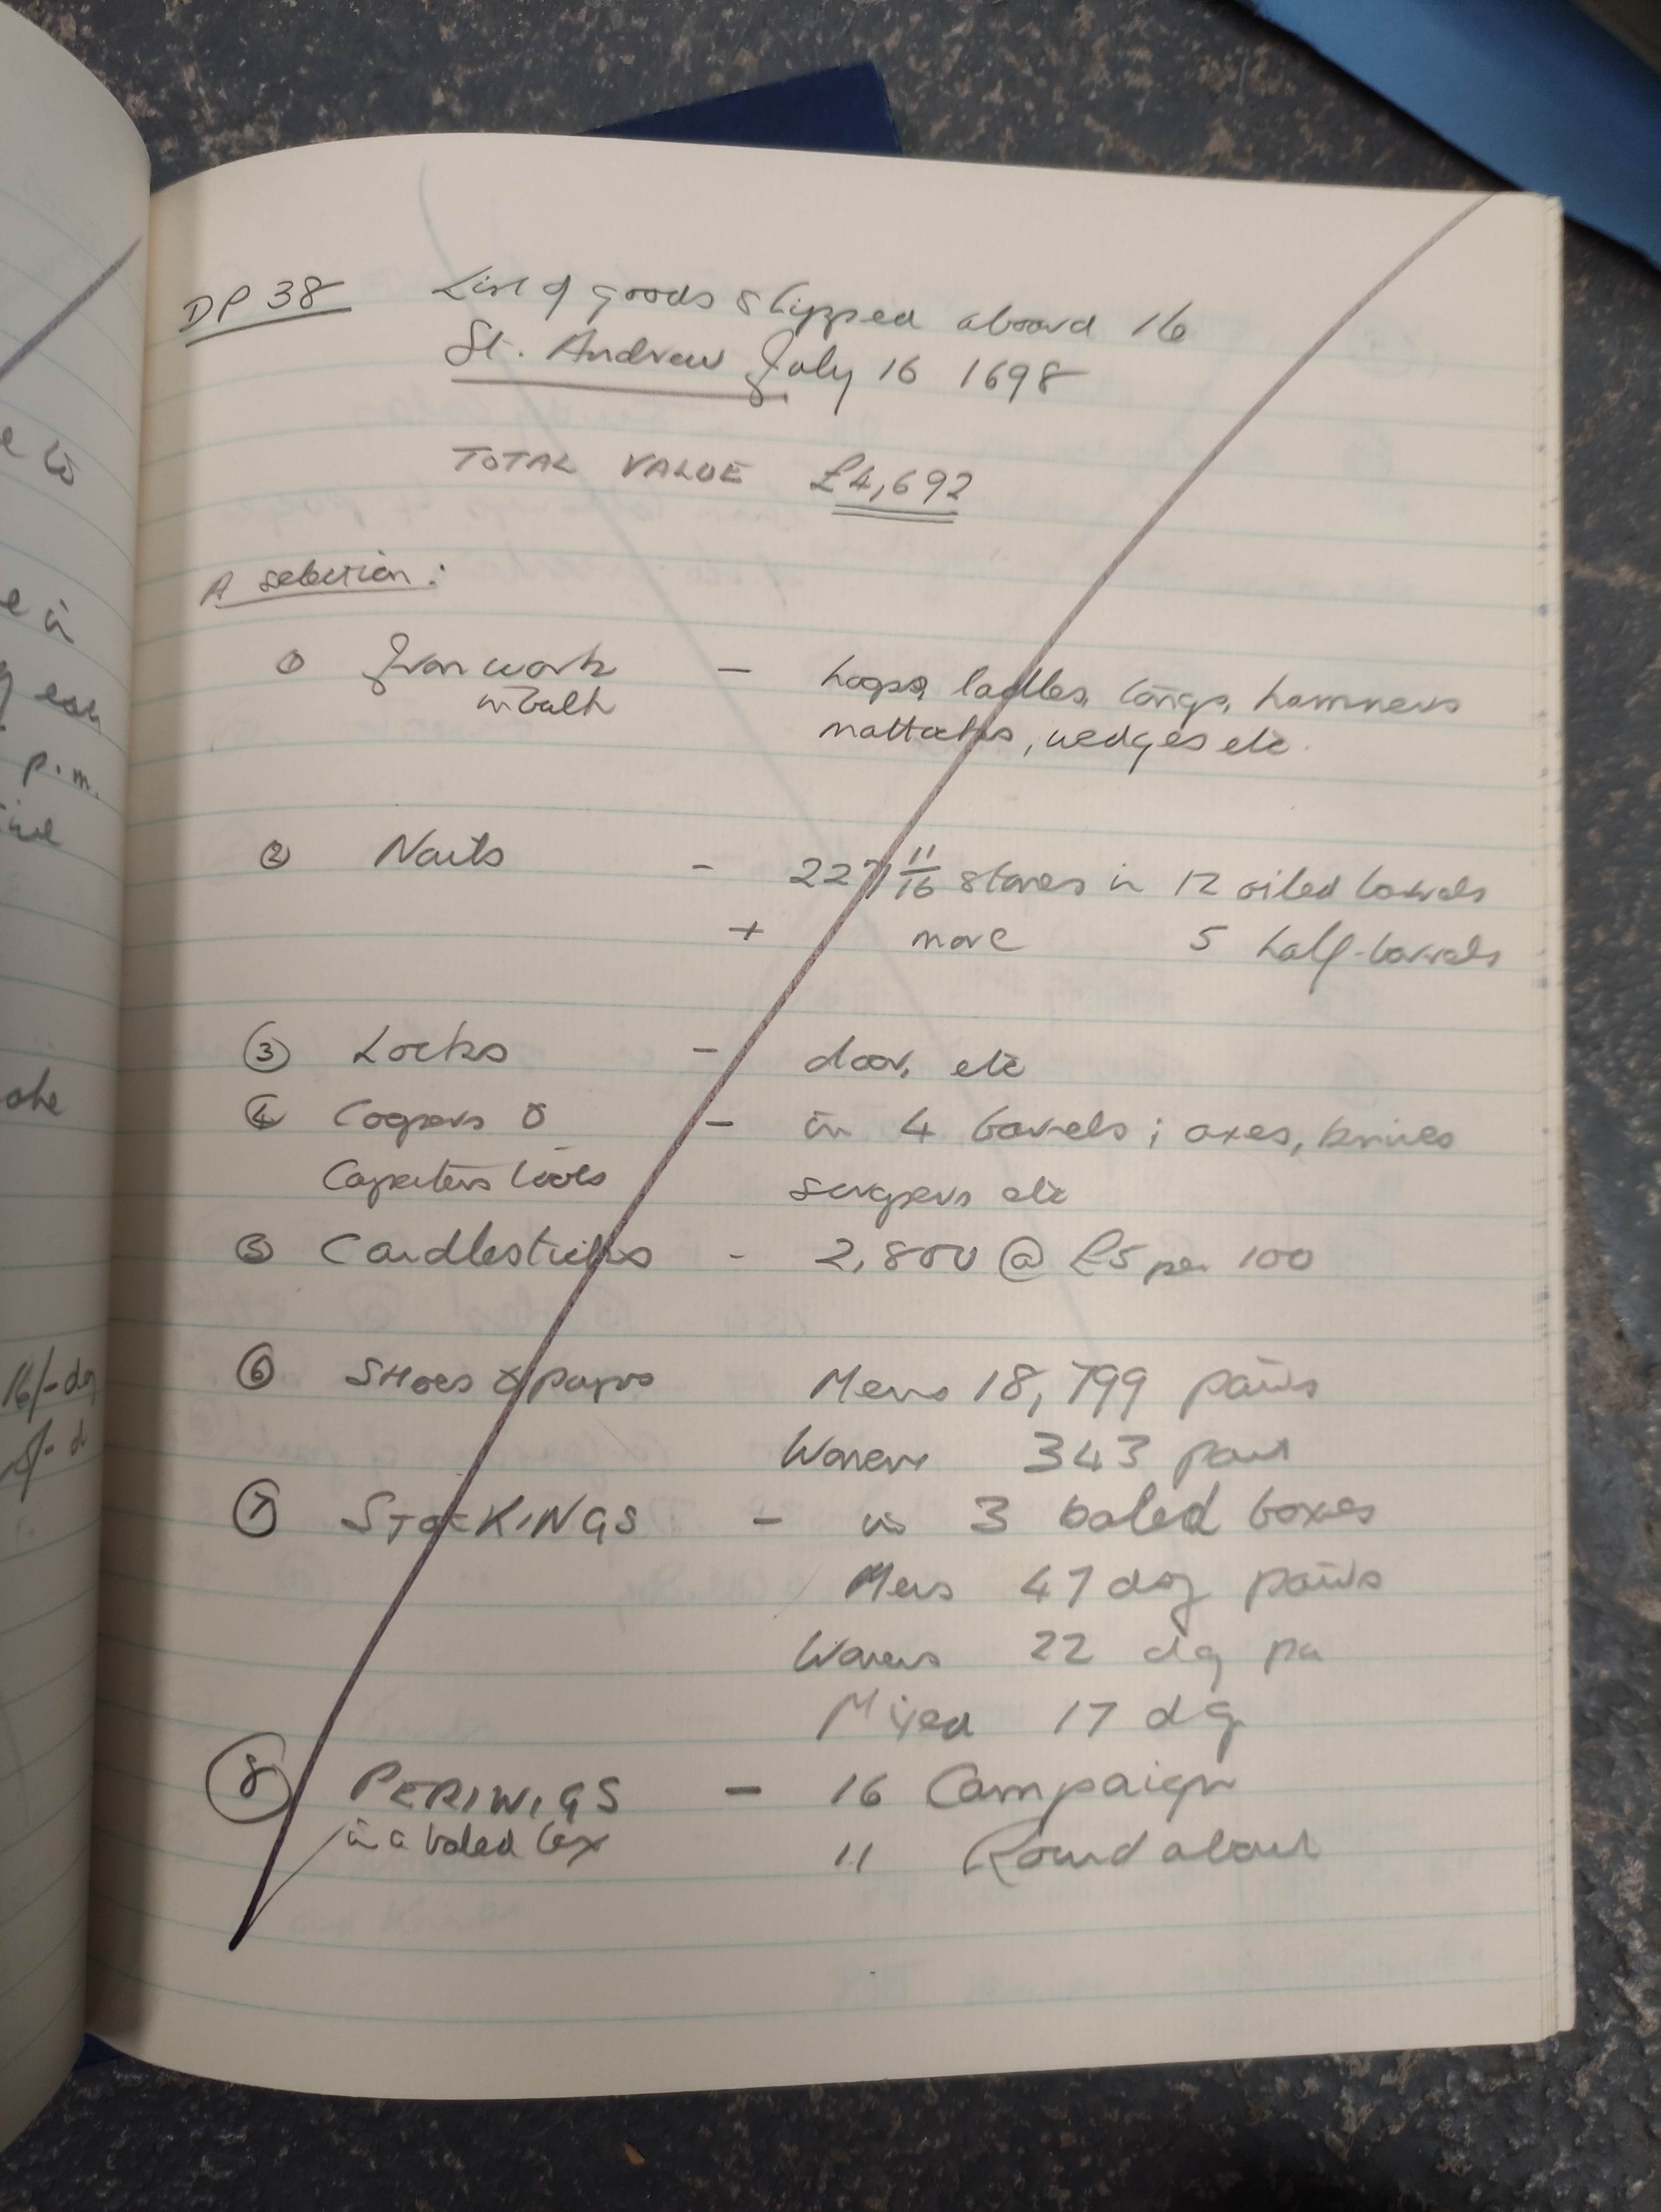 DP 38 List of goods shipped aboard 16
St. Andrew July 16 1698
TOTAL VALUE £4,692
A selection:
① Iron work - hoops, ladles, tongs, hammers
mattocks, wedges etc.
② Nails - 227 11/16 stones in 12 oiled barrels
+ more 5 half-barrels
③ Locks - door, etc
④ Coopers & - in 4 barrels; axes, knives
Carpenters tools scrapers etc
⑤ Candlesticks - 2,800 @ £5 per 100
⑥ SHoes & pumps Mens 18,799 pairs
Womens 343 pair
⑦ STOCKINGS - in 3 baled boxes
Mens 47 doz pairs
Womens 22 doz pa
Mixed 17 doz
⑧ PERIWIGS - 16 Campaign
in a baled box 11 Roundabout
e in
p.m.
16/- doz